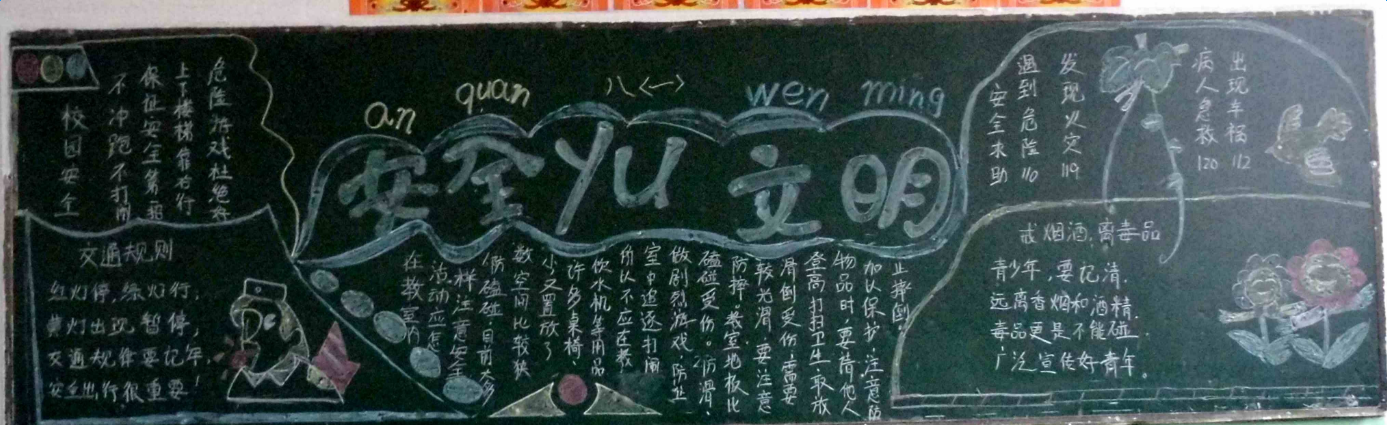 an quan 八〈一〉 wen ming
安全 yu 文明
校园安全
危险游戏杜绝好
上下楼梯靠右行
保证安全第一
不冲跑不打闹
交通规则
红灯停,绿灯行,
黄灯出现暂停,
交通规律要记牢,
安全出行很重要!
在教室防
活动应怎
样注意安全
防磕碰。目前大多
数教室空间比较狭
小又置放了
许多桌椅、
饮水机等用品
所以不应在教
室中追逐打闹
做剧烈游戏,防止
磕碰受伤。防滑、
防摔。教室地板比
较光滑,要注意
滑倒受伤,需要
登高打扫卫生,取放
物品时,要请他人
加以保护,注意防
止摔倒。
遇到危险110
安全求助
发现火灾119
病人急救120
出现车祸112
戒烟酒,离毒品
青少年,要记清,
远离香烟和酒精.
毒品更是不能碰.
广泛宣传好青年.